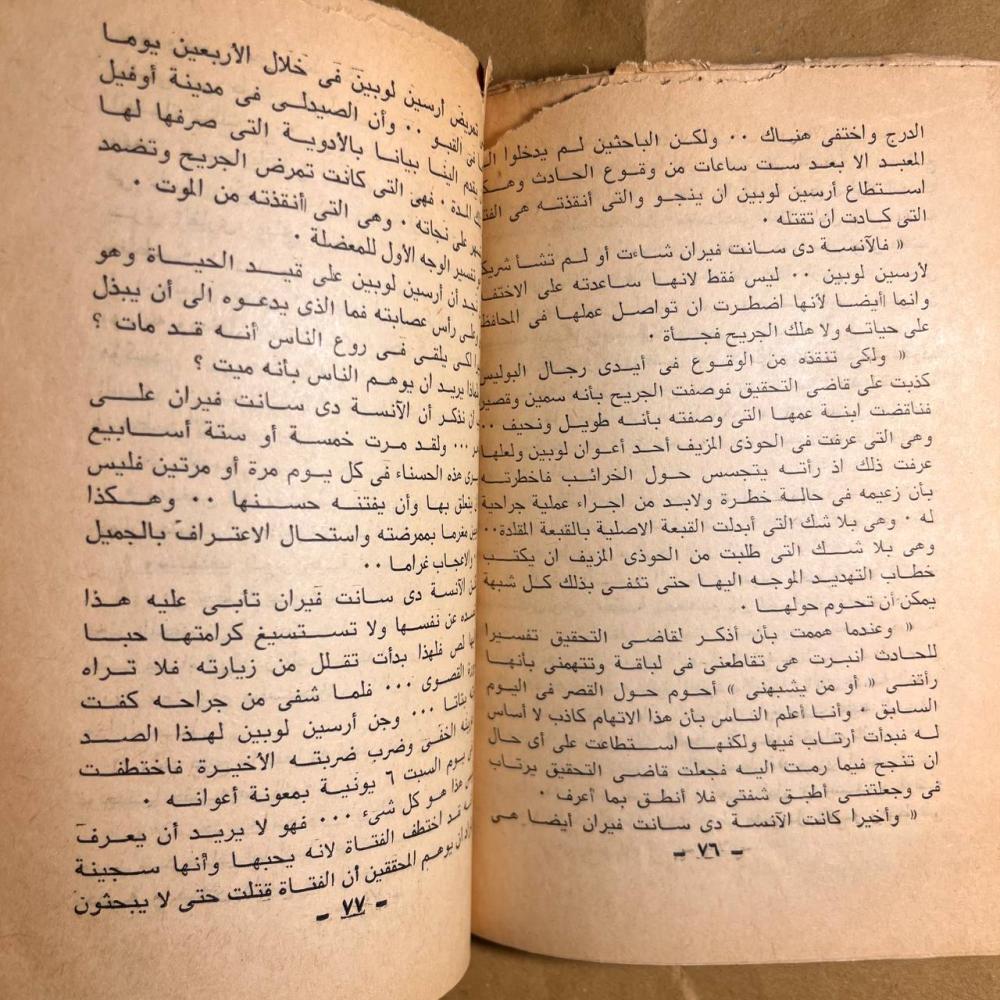 الدرج واختفى هناك ٠٠ ولكن الباحثين لم يدخلوا
المعبد الا بعد ست ساعات من وقوع الحادث
استطاع أرسين لوبين ان ينجو والتى أنقذته هى
التى كادت ان تقتله ٠
« فالآنسة دى سانت فيران شاءت أو لم تشأ
لأرسين لوبين ٠٠ ليس فقط لانها ساعدته على
وانما أيضا لأنها اضطرت ان تواصل عملها فى
على حياته ولا هلك الجريح فجأة ٠
« ولكى تنقذه من الوقوع فى أيدى رجال البوليس
كذبت على قاضى التحقيق فوصفت الجريح بأنه سمين وقصير
فناقضت ابنة عمها التى وصفته بأنه طويل ونحيف ٠٠
وهى التى عرفت فى الحوذى المزيف أحد أعوان لوبين ولعلها
عرفت ذلك اذ رأته يتجسس حول الخرائب فاخطرته
بأن زعيمه فى حالة خطرة ولابد من اجراء عملية جراحية
له ٠ وهى بلا شك التى أبدلت القبعة الاصلية بالقبعة المقلدة٠٠
وهى بلا شك التى طلبت من الحوذى المزيف ان يكتب
خطاب التهديد الموجه اليها حتى تنفى بذلك كل شبهة
يمكن أن تحوم حولها ٠
« وعندما هممت بأن أذكر لقاضى التحقيق تفسيرا
للحادث انبرت هى تقاطعنى فى لباقة وتتهمنى بأنها
رأتنى « أو من يشبهنى » أحوم حول القصر فى اليوم
السابق ٠ وأنا أعلم الناس بأن هذا الاتهام كاذب لا أساس
له فبدأت أرتاب فيها ولكنها استطاعت على أى حال
ان تنجح فيما رمت اليه فجعلت قاضى التحقيق يرتاب
فى وجعلتنى أطبق شفتى فلا أنطق بما أعرف ٠
« وأخيرا كانت الآنسة دى سانت فيران أيضا هى
- ٧٦ -
تمريض أرسين لوبين فى خلال الأربعين يوما
القبو ٠٠ وأن الصيدلى فى مدينة أوفيل
الينا بيانا بالأدوية التى صرفها لها
المدة ٠ فهى التى كانت تمرض الجريح وتضمد
على نجاته ٠ وهى التى أنقذته من الموت ٠
تفسير الوجه الأول للمعضلة ٠
أن أرسين لوبين على قيد الحياة وهو
رأس عصابته فما الذى يدعوه الى أن يبذل
لكى يلقى فى روع الناس أنه قد مات ؟
يريد ان يوهم الناس بأنه ميت ؟
أن نذكر أن الآنسة دى سانت فيران على
٠٠٠ ولقد مرت خمسة أو ستة أسابيع
هذه الحسناء فى كل يوم مرة أو مرتين فليس
بها وأن يفتنه حسنها ٠٠ وهكذا
مغرما بممرضته واستحال الاعتراف بالجميل
والاعجاب غراما ٠٠
الآنسة دى سانت فيران تأبى عليه هذا
عن نفسها ولا تستسيغ كرامتها حبا
لص فلهذا بدأت تقلل من زيارته فلا تراه
القصوى ٠٠٠ فلما شفى من جراحه كفت
بتاتا ٠٠٠ وجن أرسين لوبين لهذا الصد
وضرب ضربته الأخيرة فاختطفت
يوم السبت ٦ يونية بمعونة أعوانه ٠
هذا هو كل شىء ٠٠٠ فهو لا يريد أن يعرف
قد اختطف الفتاة لانه يحبها وأنها سجينة
أن يوهم المحققين أن الفتاة قتلت حتى لا يبحثون
- ٧٧ -